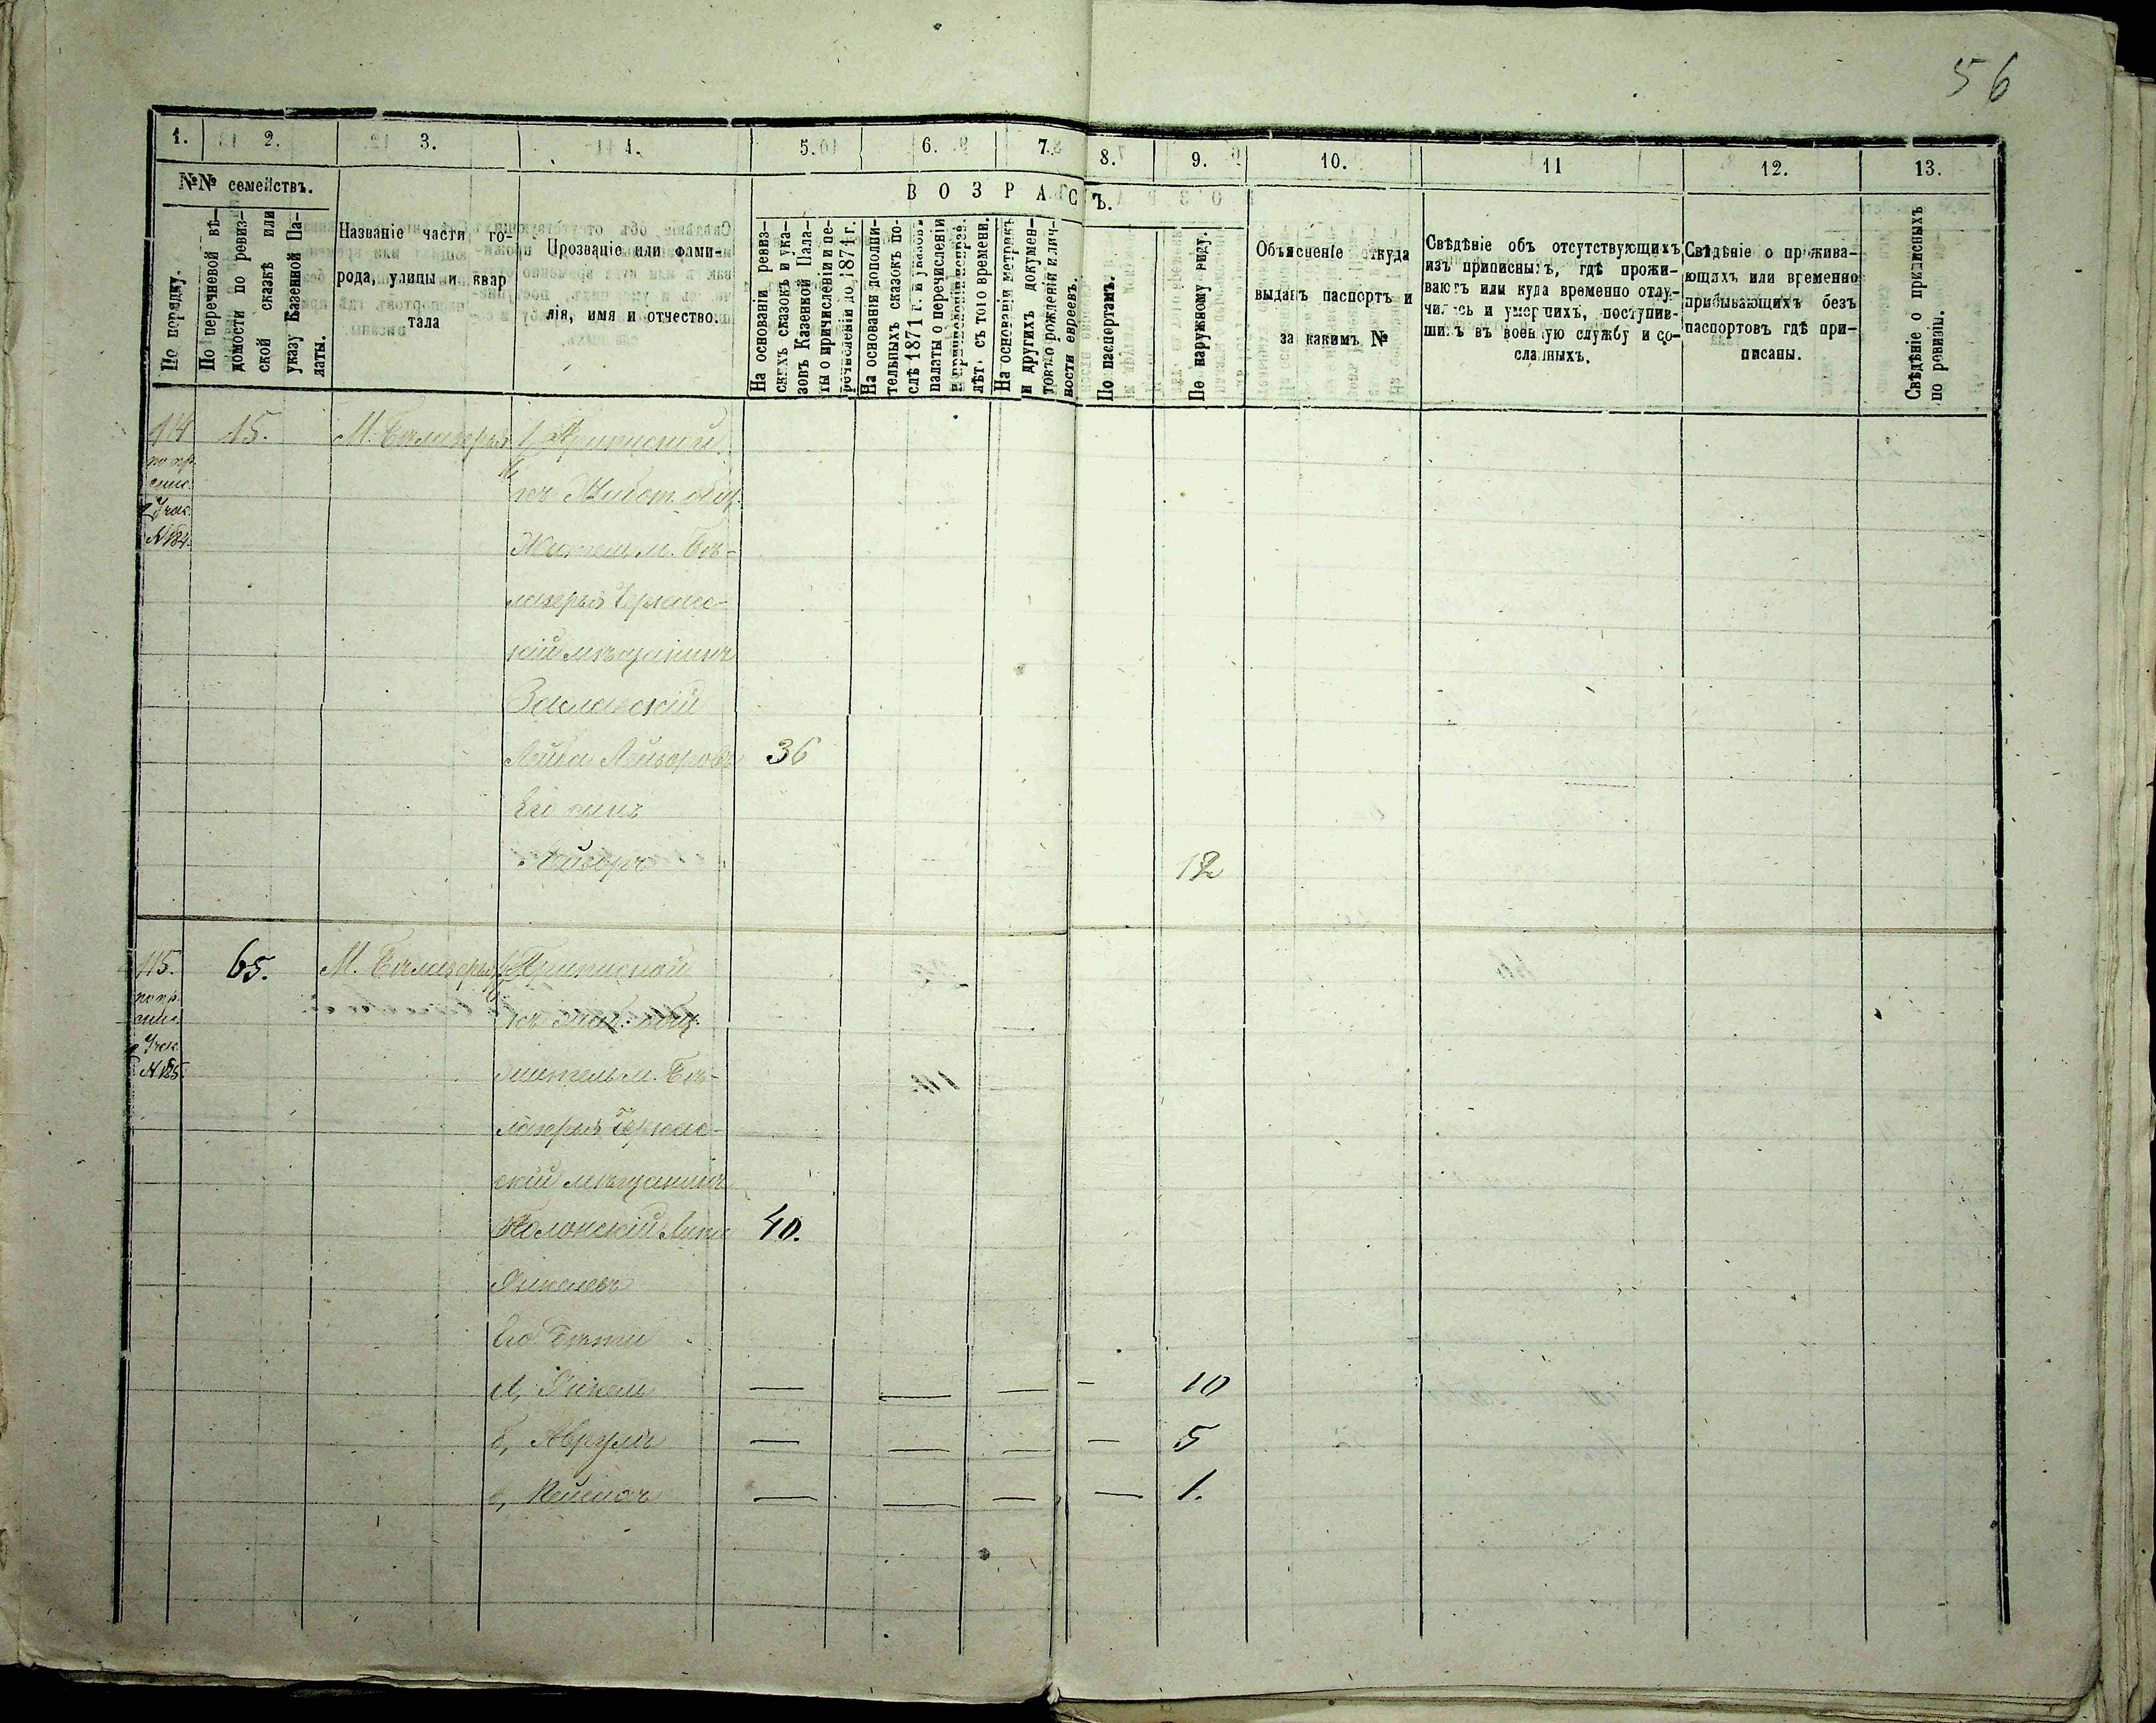 56
1. 2. 3. 4. 5. 6. 7. 8. 9. 10. 11 12. 13.
№№ семействъ.
В О З Р А С Т Ъ.
По порядку.
По перечневой вѣ-
домости по ревиз-
ской сказкѣ или
указу Казенной Па-
латы.
Названіе части го-
рода, улицы и квар
тала
Прозваніе или фами-
лія, имя и отчество.
На основаніи ревиз-
скихъ сказокъ и ука-
зовъ Казенной Пала-
ты о причисленіи и пе-
речисленіи до 1871 г.
На основаніи дополни-
тельныхъ сказокъ по-
слѣ 1871 г. и указовъ
палаты о перечисленіи
лѣтъ съ того времени.
На основаніи метрикъ
и другихъ докумен-
товъ о рожденіи и лич-
ности евреевъ.
По паспортамъ.
По наружному виду.
Объясненіе откуда
выданъ паспортъ и
за какимъ №
Свѣдѣніе объ отсутствующихъ
изъ приписныхъ, гдѣ прожи-
ваютъ или куда временно отлу-
чились и умершихъ, поступив-
шихъ въ военную службу и со-
сланныхъ.
Свѣдѣніе о прожива-
ющихъ или временно
пребывающихъ безъ
паспортовъ гдѣ при-
писаны.
Свѣдѣніе о приписныхъ
по ревизіи.
114 15. М. Бѣлозерья Приписной
къ общ.
Житель м. Бѣ-
лозерья Черкас-
кій мѣщанинъ
Заславскій
Лейба Лейзоровъ 36
Его сынъ
Лейзоръ 12
№ 184.
115. 65. М. Бѣлозерья Приписной
къ общ.
житель м. Бѣ-
лозерья Черкас-
скій мѣщанинъ
Полонскій 40.
Янкелевъ
Его Дѣти
а, Янкель — — — — 10
б, Аврумъ — — — — 5
— — — — 1.
№ 185.